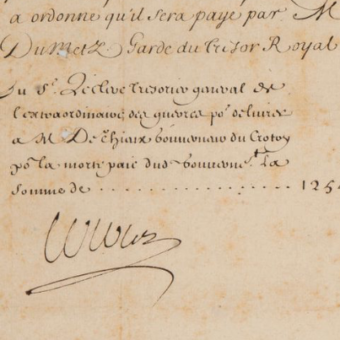 a ordonne qu'il sera paye par M
Du Metz Garde du Tresor Royal
Au Sr. Le Clerc Tresorier general de
l'extraordinaire des guerres pr. delivrer
a M De Chiaux Gouverneur du Crotoy
pr. la morte paie dud. Gouvernemt. La
Somme de .................. 125